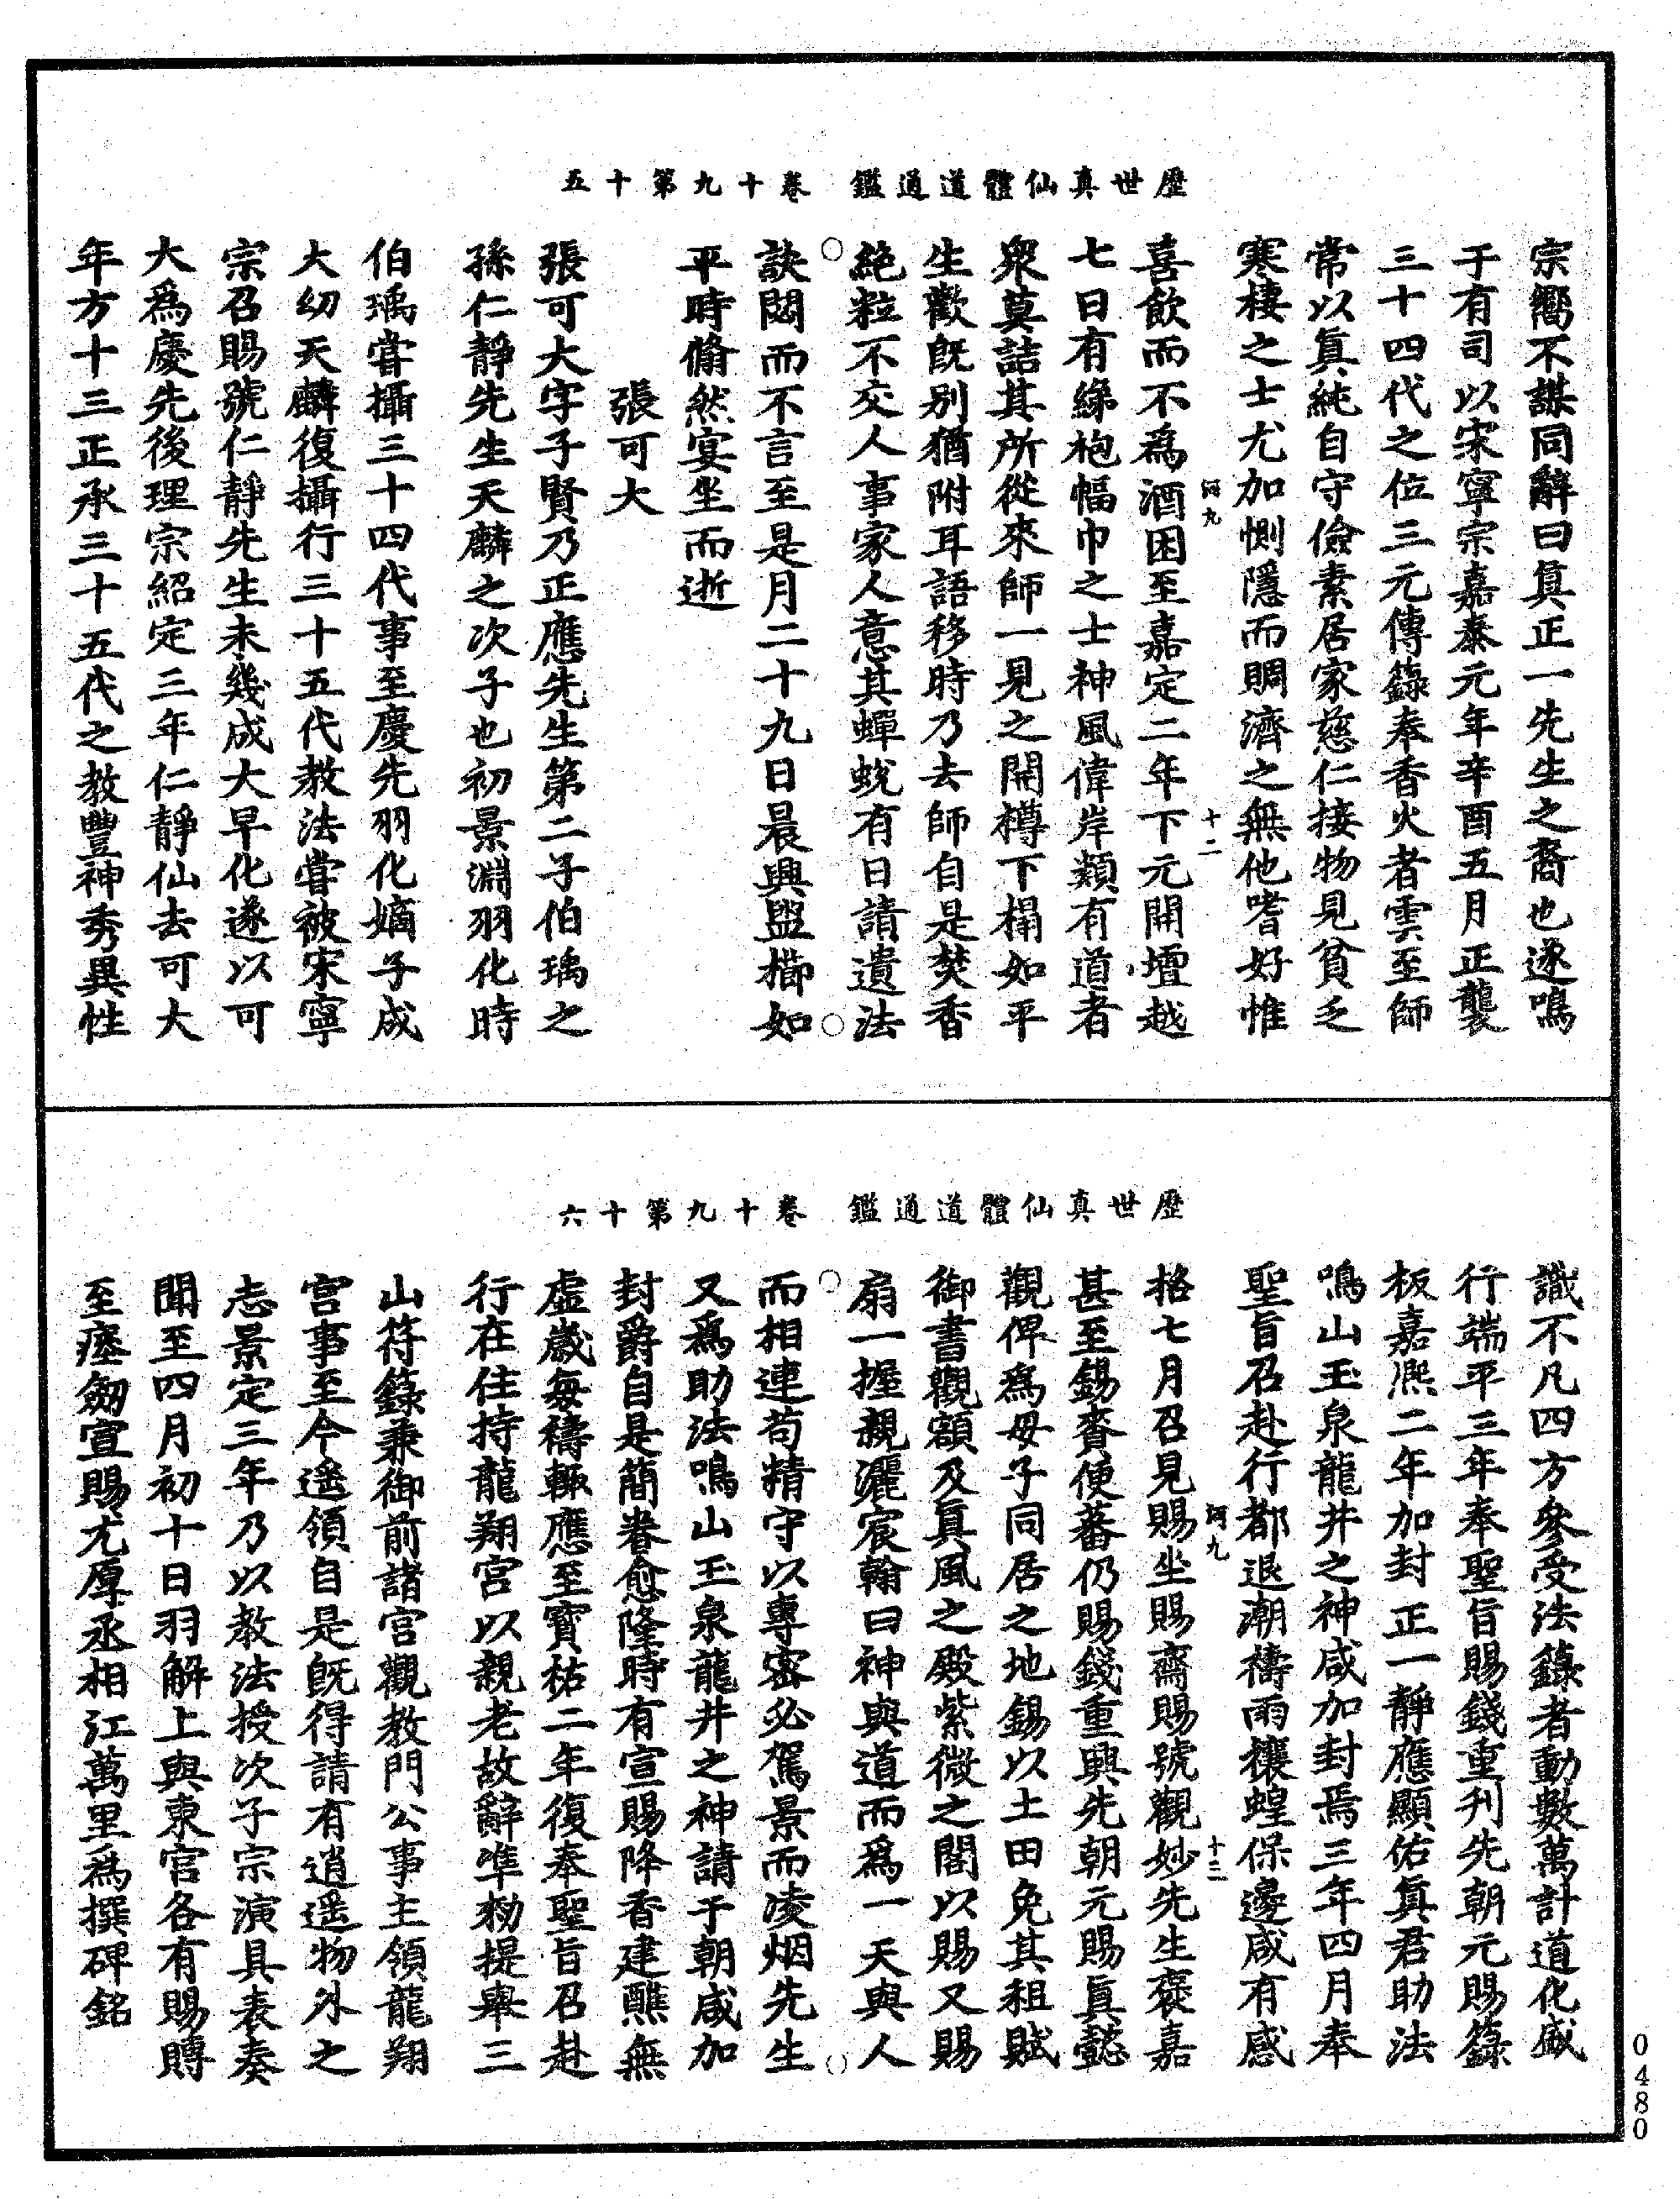 歷世真仙體道通鑑　卷十九第十五
宗嚮不謀同辭曰真正一先生之裔也遂鳴
于有司以宋寧宗嘉泰元年辛酉五月正襲
三十四代之位三元傳籙奉香火者雲至師
常以真純自守儉素居家慈仁接物見貧乏
寒棲之士尤加惻隱而賙濟之無他嗜好惟
河九　十二
喜飲而不為酒困至嘉定二年下元開壇越
七日有絲袍幅巾之士神風偉岸類有道者
衆莫詰其所從來師一見之開樽下榻如平
生歡既別猶附耳語移時乃去師自是焚香
絶粒不交人事家人意其蟬蛻有日請遺法
訣閟而不言至是月二十九日晨興盥櫛如
平時翛然宴坐而逝
張可大
張可大字子賢乃正應先生第二子伯瑀之
孫仁靜先生天麟之次子也初景淵羽化時
伯瑀甞攝三十四代事至慶先羽化嫡子成
大幼天麟復攝行三十五代教法甞被宋寧
宗召賜號仁靜先生未幾成大早化遂以可
大為慶先後理宗紹定三年仁靜仙去可大
年方十三正承三十五代之教豐神秀異性
歷世真仙體道通鑑　卷十九第十六
識不凡四方參受法籙者動數萬計道化盛
行端平三年奉聖旨賜錢重刋先朝元賜籙
板嘉熈二年加封正一靜應顯佑真君助法
鳴山玉泉龍井之神咸加封焉三年四月奉
聖旨召赴行都退潮禱雨禳蝗保邊咸有感
河九　十三
格七月召見賜坐賜齋賜號觀妙先生褒嘉
甚至錫賚便蕃仍賜錢重興先朝元賜真懿
觀俾為母子同居之地錫以土田免其租賦
御書觀額及真風之殿紫微之閣以賜又賜
扇一握親灑宸翰曰神與道而為一天與人
而相連苟精守以專密必駕景而凌烟先生
又為助法鳴山玉泉龍井之神請于朝咸加
封爵自是簡眷愈隆時有宣賜降香建醮無
虛歲每禱輒應至寳祐二年復奉聖旨召赴
行在住持龍翔宮以親老故辭準勑提舉三
山符籙兼御前諸宮觀教門公事主領龍翔
宮事至今遥領自是既得請有逍遥物外之
志景定三年乃以教法授次子宗演具表奏
聞至四月初十日羽解上與東宮各有賜賻
至瘞劒宣賜尤厚丞相江萬里為撰碑銘
0480